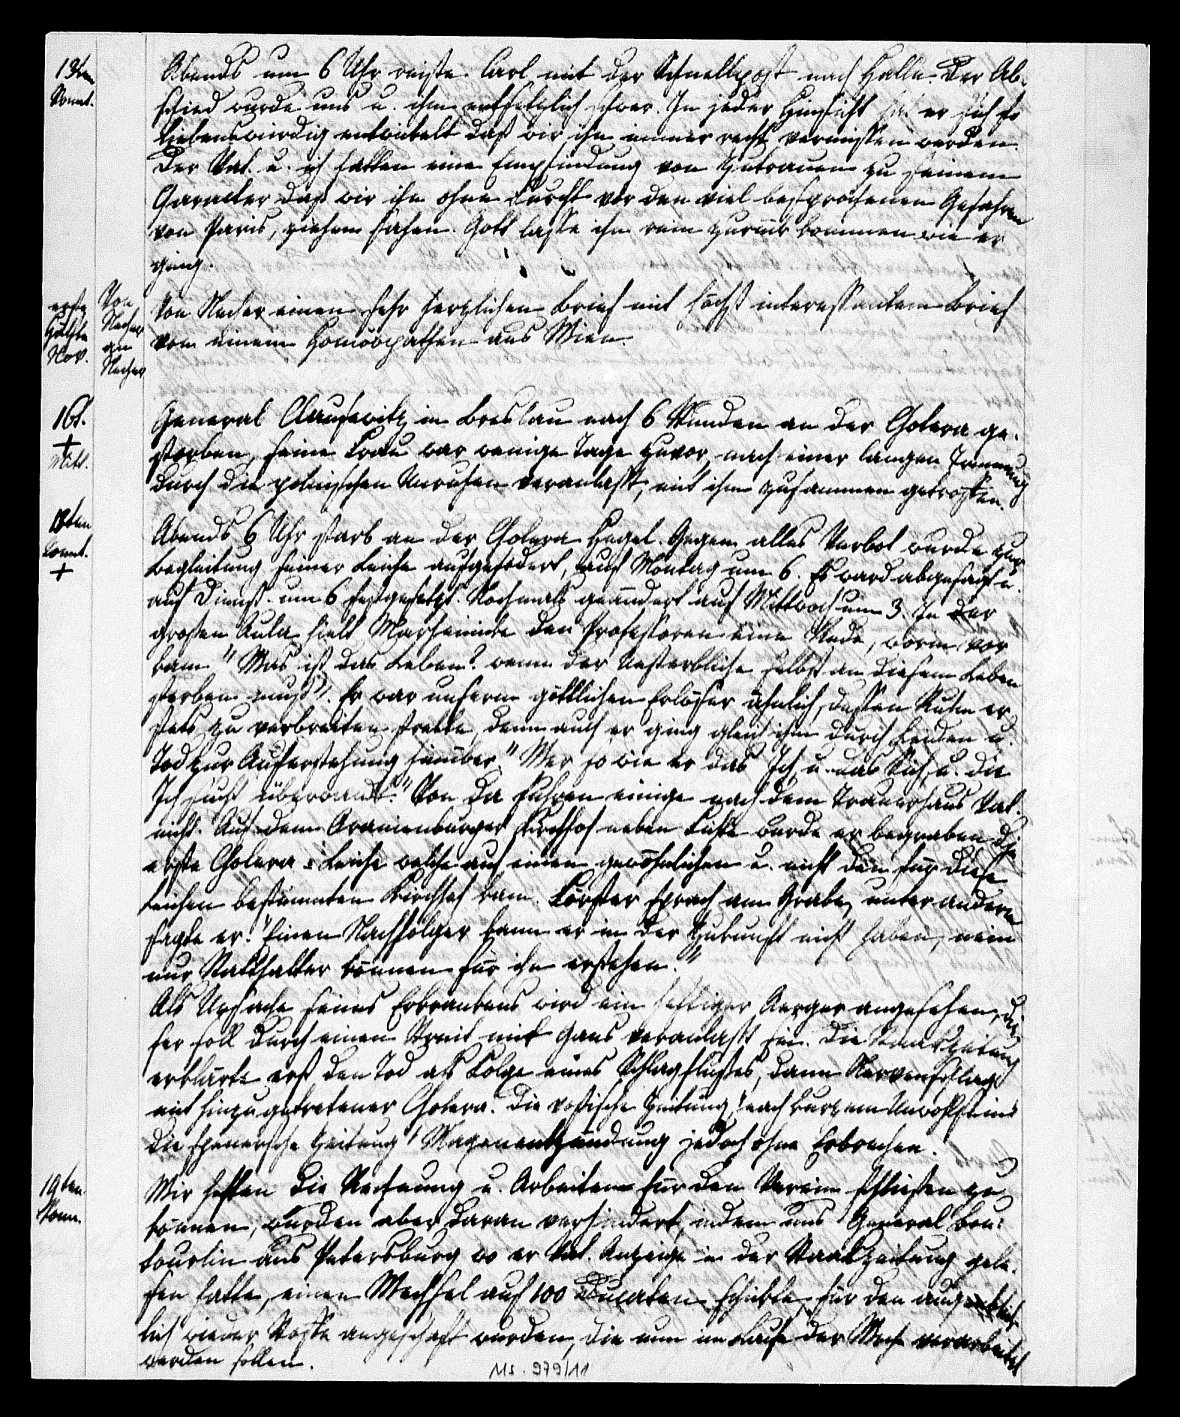 13ten
Sonnt.
Abends um 6 Uhr reiste Carl mit der Schnellpost nach Halle. Der Ab-
schied wurde uns u. ihm entsetzlich schwer. In jeder Hinsicht hat er sich so
liebenswürdig entwickelt daß wir ihn immer recht vermissen werden.
Der Vat. u. ich hatten eine Empfindung von Zutrauen zu seinem
Caracter daß wir ihn ohne Furcht vor den viel besprochenen Gefahren
von Paris, ziehen sahen. Gott lasse ihn rein zurück kommen wie er
ging.
erste
Hälfte
Nov.
Von
Necher
an
Necher
Von Necher einen sehr herzlichen Brief mit höchst interessantem Brief
von einem Homöopathen aus Wien.
16t.
+
Mitt.
General Clausewitz in Breslau nach 6 Stunden an der Colera ge-
storben, seine Frau war wenige Tage zuvor, nach einer langen Trennung
durch die polnischen Unruhen veranlaßt, mit ihm zusammen getroffen.
Sonnt.
+
Abends 6 Uhr starb an der Colera Hegel. Gegen alles Verbot wurde zur
Begleitung seiner Leiche aufgefodert, auf Montag um 6. Es ward abgesagt u.
auf Dienst. um 6 festgesetzt. Nochmals geändert auf Mittwoch um 3. In der
großen Aula hielt Marheinicke den Professoren eine Rede, worin vor
kam "Was ist das Leben? wenn der Unsterbliche selbst an diesem Leben
sterben muß". Er war unserm göttlichen Erlöser ähnlich, dessen Ruhm er
stets zu verbreiten strebte, denn auch er ging gleich ihm durch Leiden u.
Tod zur Auferstehung hinüber." Wer so wie er das Ich u. das Sich u. die
Ich sucht überwand." Von da fuhren einige nach dem Trauerhaus Vat.
nicht. Auf dem Oranienburger Kirchhof neben Fichte wurde er begraben die
erste Colera-Leiche welche auf einen gewöhnlichen u. nicht den für diese
Leichen bestimmten Kirchhof kam. Förster sprach am Grabe, unter anderm
sagte er: "Einen Nachfolger kann er in der Zukunft nicht haben, nein
nur Statthalter können für ihn erstehen."
Als Ursache seines Erkrankens wird ein heftiger Aerger angesehen, die-
ser soll durch einen Streit mit Gans veranlaßt sein. Die Staatszeitung
erklärte erst den Tod als Folge eines Schlagflußes, dann Nervenschlag
mit hinzu getretener Colera. Die voßische Zeitung "nach kurzem Unwohlsein"
die spenersche Zeitung "Magenentzündung jedoch ohne Erbrechen.
19ten
Sonn.
Wir hofften die Rechnung u. Arbeiten für den Verein schließen zu
können, wurden aber daran verhindert, indem uns General Bou-
tourlin aus Petersburg wo er Vat. Anzeige in der Staatszeitung gele-
sen hatte, einen Wechsel auf 100 Ducaten schickte, für den augenblick-
lich wieder Stoffe angeschaft wurden, die nun im Laufe der Woche verarbeitet
werden sollen.
Ms. 979/11